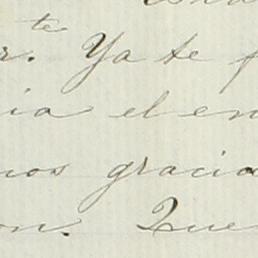 r.te Ya te
ia el en
nos gracia
on. Que